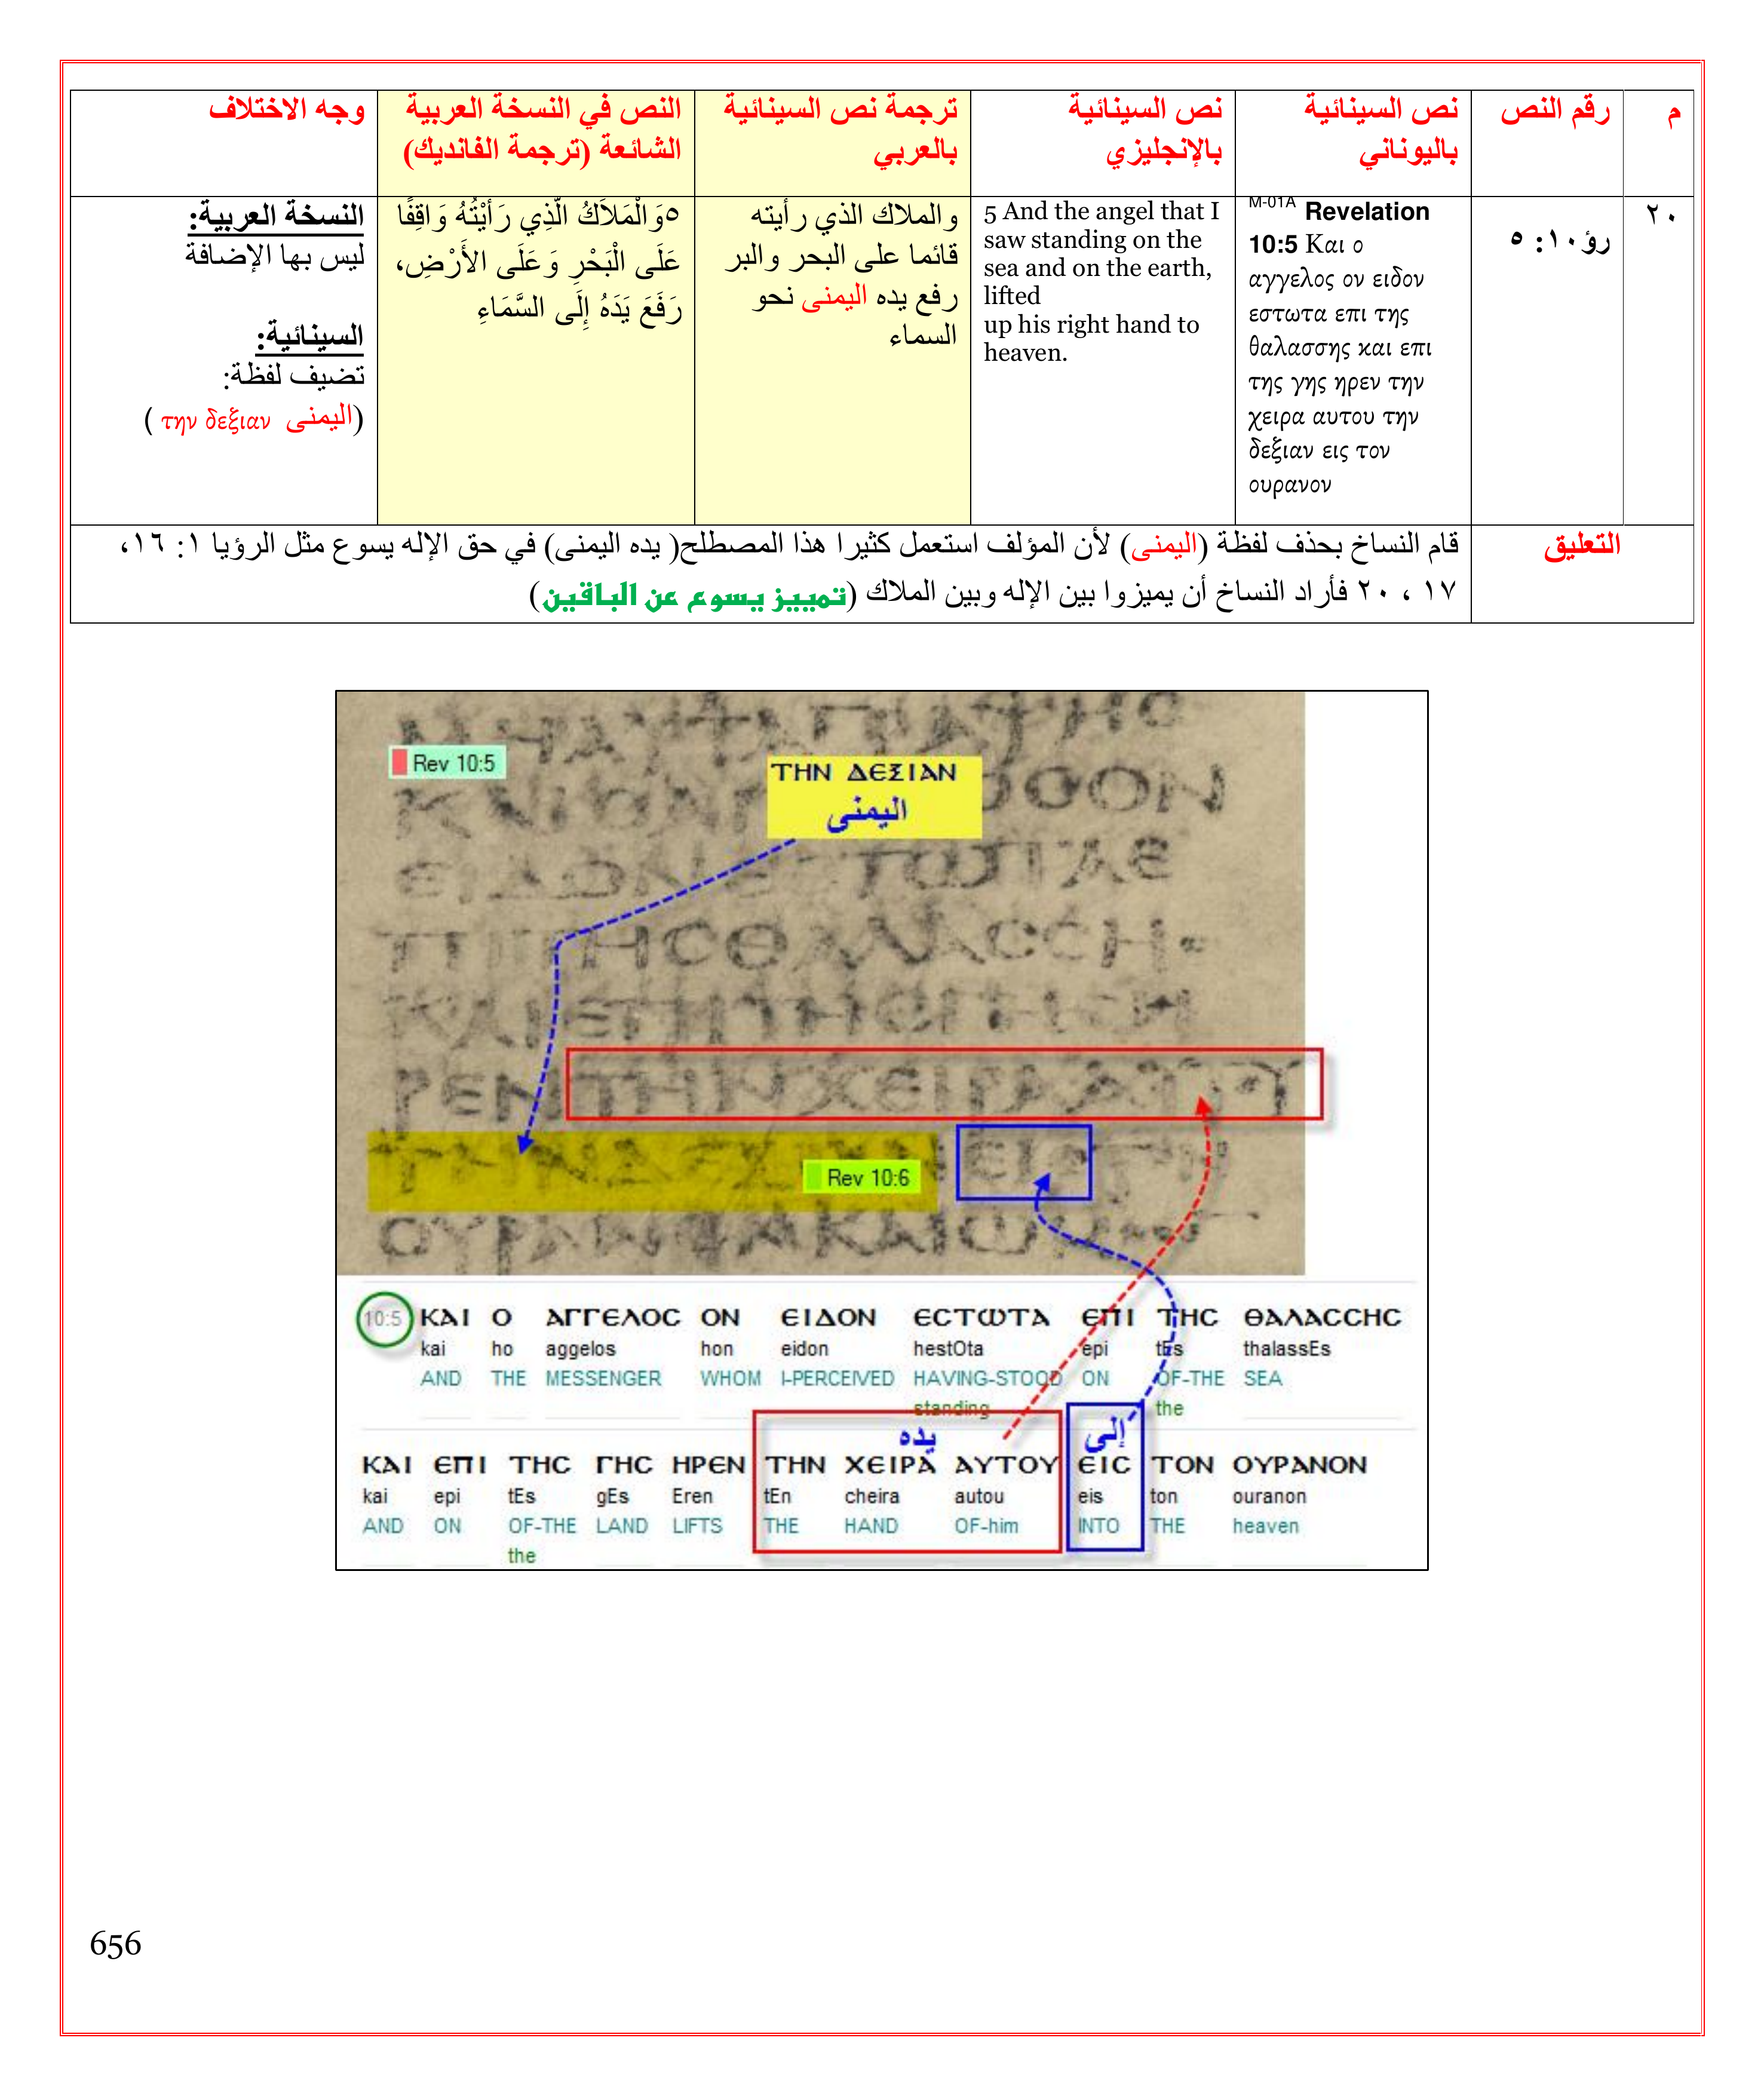 م
رقم النص
نص السينائية
باليوناني
نص السينائية
بالإنجليزي
ترجمة نص السينائية
بالعربي
النص في النسخة العربية
الشائعة (ترجمة الفانديك)
وجه الاختلاف
٢٠
رؤ١٠: ٥
M-01A Revelation
10:5 Και ο
αγγελος ον ειδον
εστωτα επι της
θαλασσης και επι
της γης ηρεν την
χειρα αυτου την
δεξιαν εις τον
ουρανον
5 And the angel that I
saw standing on the
sea and on the earth,
lifted
up his right hand to
heaven.
والملاك الذي رأيته
قائما على البحر والبر
رفع يده اليمنى نحو
السماء
٥وَالْمَلاَكُ الَّذِي رَأَيْتُهُ وَاقِفًا
عَلَى الْبَحْرِ وَعَلَى الأَرْضِ،
رَفَعَ يَدَهُ إِلَى السَّمَاءِ
النسخة العربية:
ليس بها الإضافة
السينائية:
تضيف لفظة:
(اليمنى την δεξιαν )
التعليق
قام النساخ بحذف لفظة (اليمنى) لأن المؤلف استعمل كثيرا هذا المصطلح( يده اليمنى) في حق الإله يسوع مثل الرؤيا ١: ١٦،
١٧ ، ٢٠ فأراد النساخ أن يميزوا بين الإله وبين الملاك (تمييز يسوع عن الباقين)
Rev 10:5
ΤΗΝ ΔΕΞΙΑΝ
اليمنى
ΡΕΝΤΗΝΧΕΙΡΑΑΥΤΟΥ
Rev 10:6
10:5 ΚΑΙ Ο ΑΓΓΕΛΟC ΟΝ ΕΙΔΟΝ ΕCΤΩΤΑ ΕΠΙ ΤΗC ΘΑΛΑCCΗC
kai ho aggelos hon eidon hestOta epi tEs thalassEs
AND THE MESSENGER WHOM I-PERCEIVED HAVING-STOOD ON OF-THE SEA
standing the
يده إلى
ΚΑΙ ΕΠΙ ΤΗC ΓΗC ΗΡΕΝ ΤΗΝ ΧΕΙΡΑ ΑΥΤΟΥ ΕΙC ΤΟΝ ΟΥΡΑΝΟΝ
kai epi tEs gEs Eren tEn cheira autou eis ton ouranon
AND ON OF-THE LAND LIFTS THE HAND OF-him INTO THE heaven
the
656